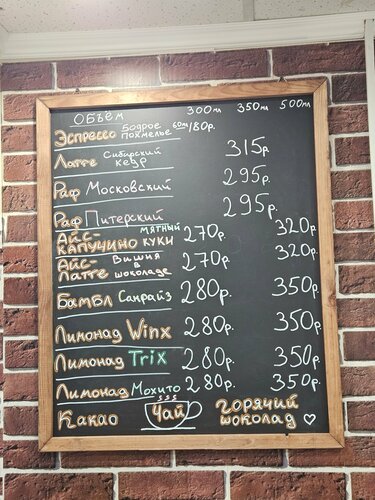 Объём 300мл 350мл 500мл
Эспрессо Бодрое похмелье 60м/180р.
Латте Сибирский кедр 315р.
Раф Московский 295р.
Раф Питерский 295р.
Айс-капучино мятный куки 270р. 320р.
Айс-латте Вишня в шоколаде 270р. 320р.
Бамбл Санрайз 280р. 350р.
Лимонад Winx 280р. 350р.
Лимонад Trix 280р. 350р.
Лимонад Мохито 280р. 350р.
Какао Чай горячий шоколад